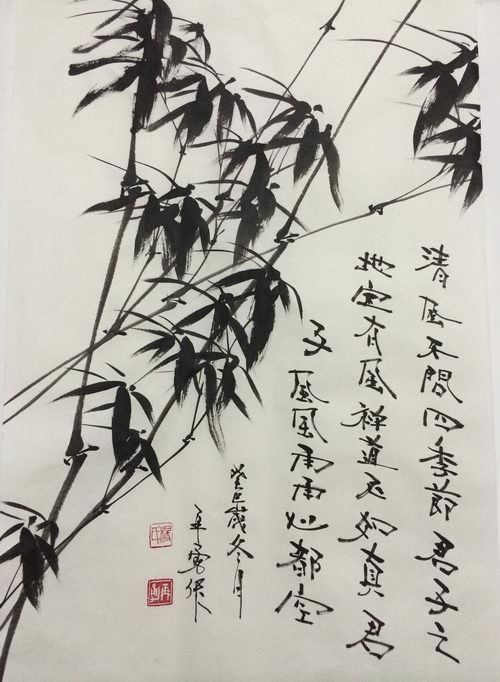 清風不間四季節君子之
地空有風禅道不如真君
子風風雨雨也都空
癸巳歲冬月